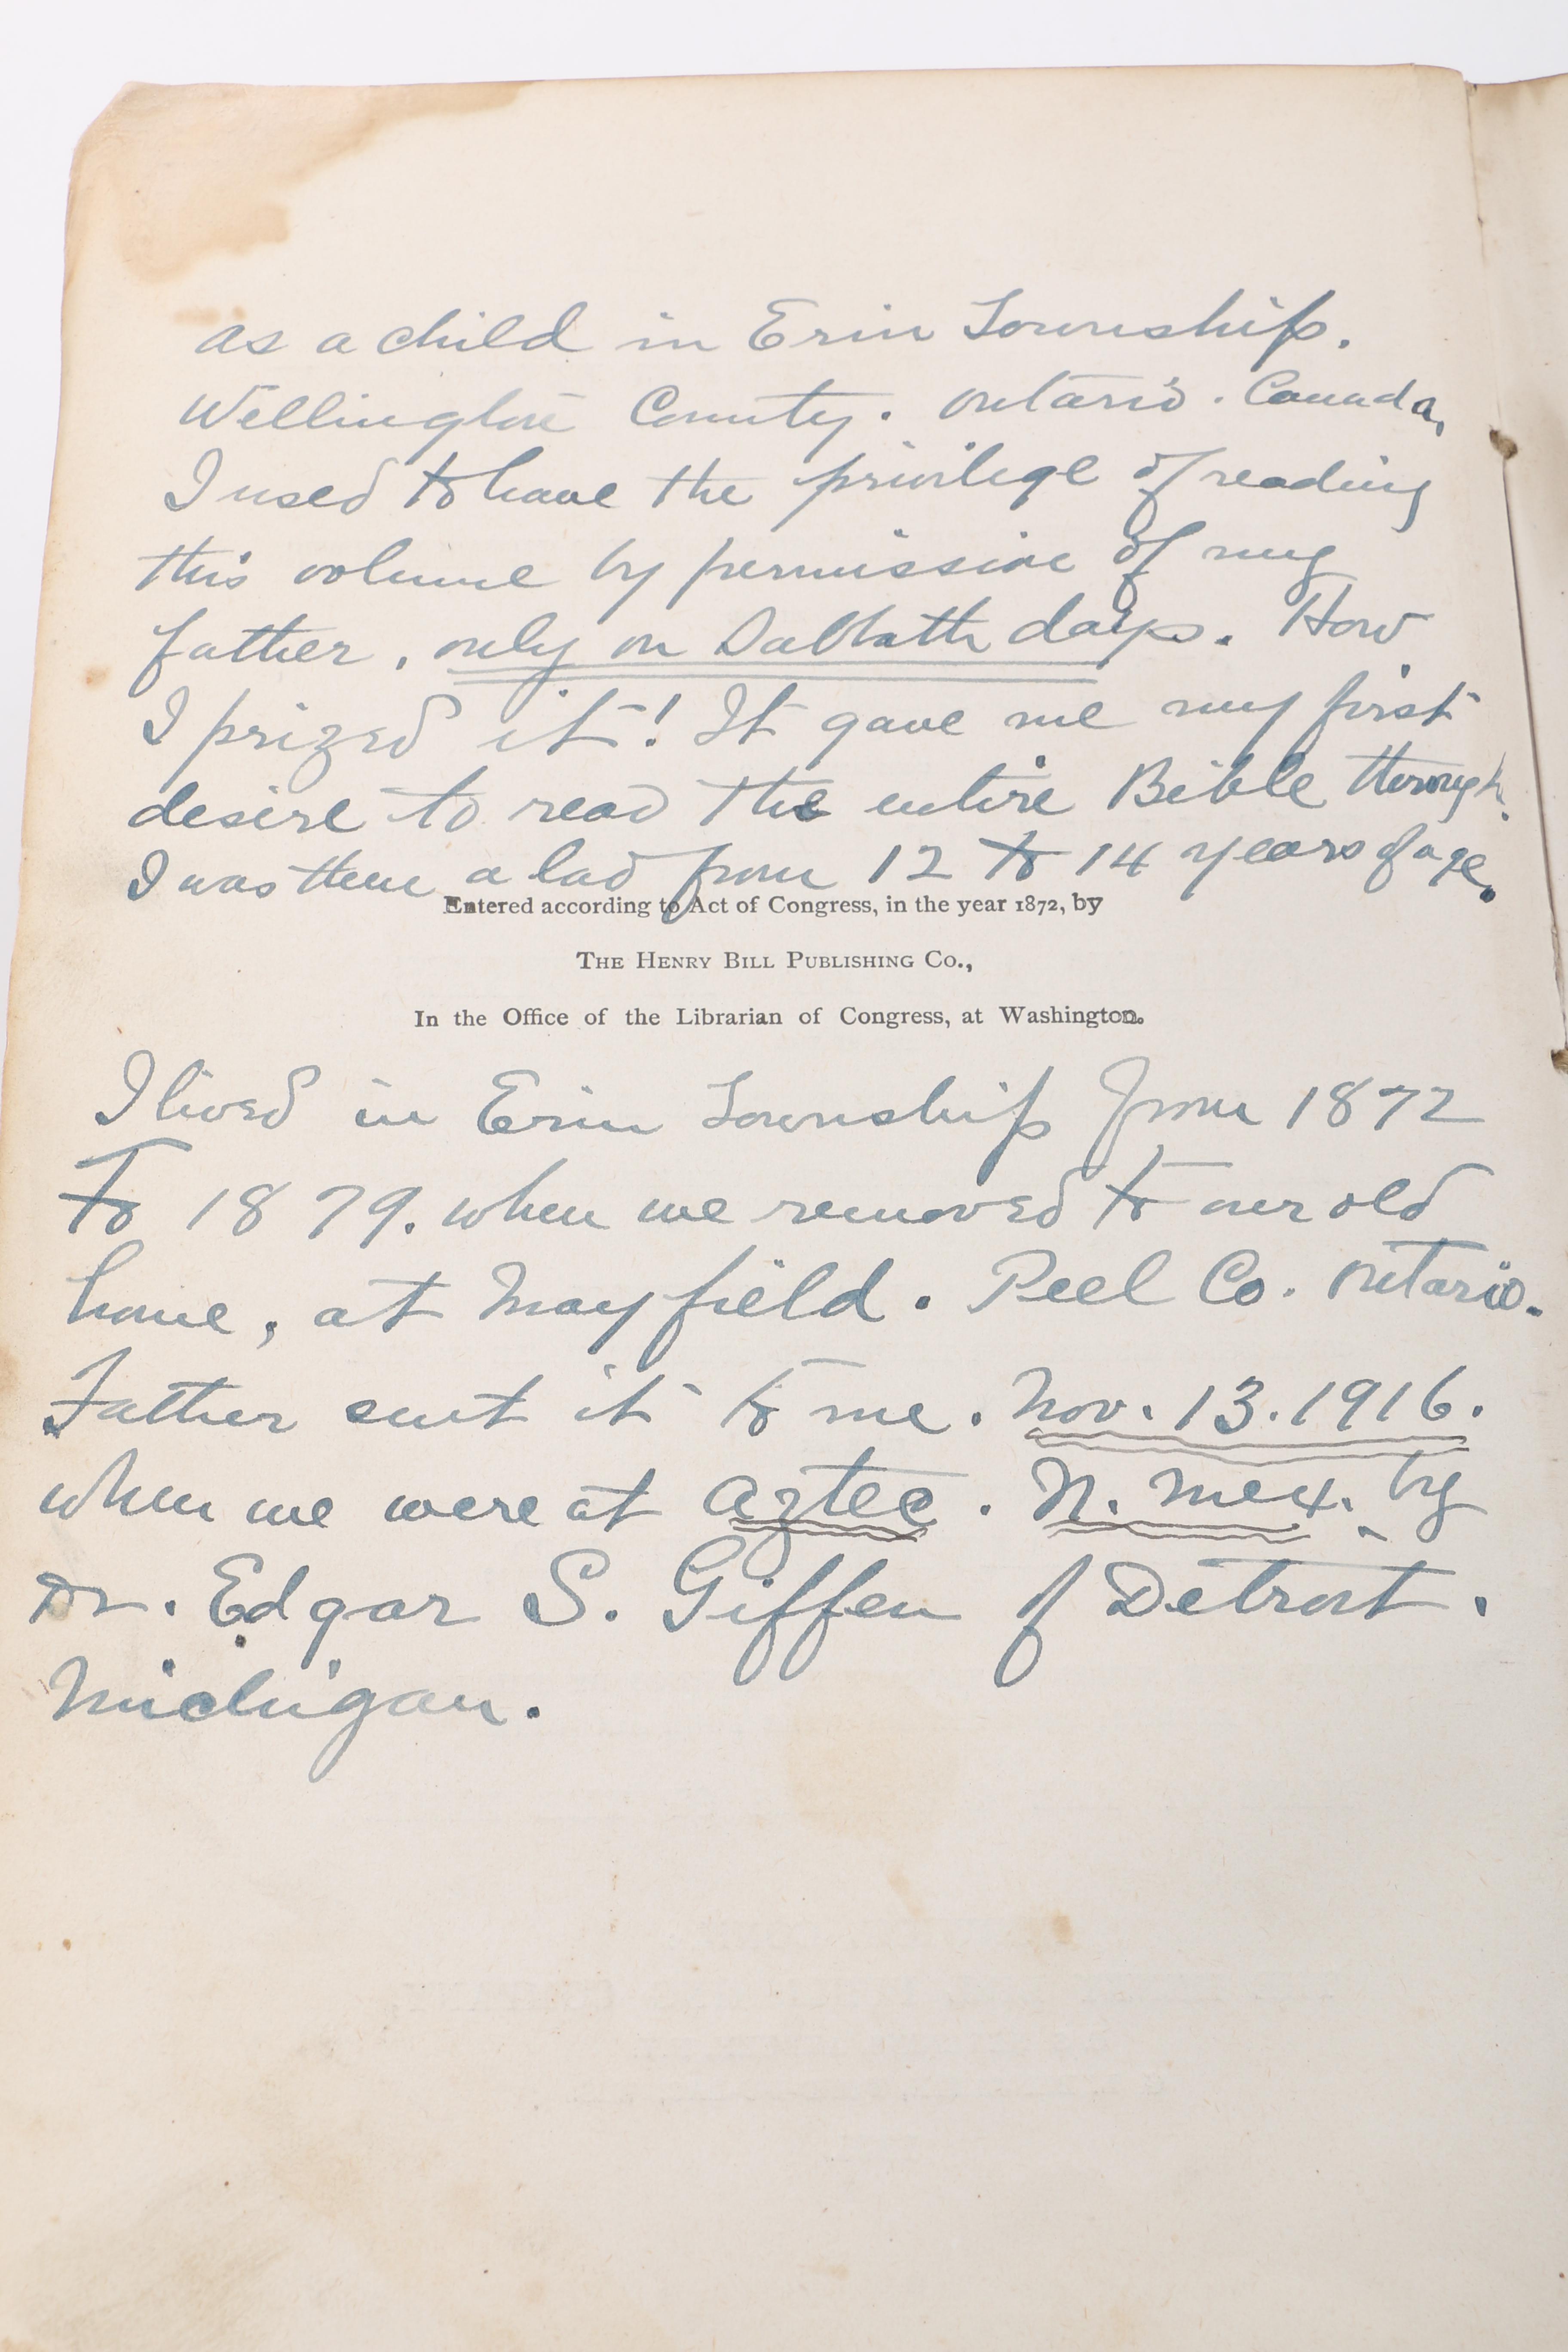 as a child in Erin Township.
Wellington County. Ontario. Canada,
I used to have the privilege of reading
this volume by permission of my
father, only on Sabbath days. How
I prized it! It gave me my first
desire to read the entire Bible through.
I was then a lad from 12 to 14 years of age.
Entered according to Act of Congress, in the year 1872, by
THE HENRY BILL PUBLISHING CO.,
In the Office of the Librarian of Congress, at Washington.
I lived in Erin Township from 1872
To 1879. when we removed to our old
home, at Mayfield. Peel Co. Ontario.
Father sent it to me. Nov. 13. 1916.
when we were at Aztec. N. Mex. by
Dr. Edgar S. Giffen of Detroit.
Michigan.